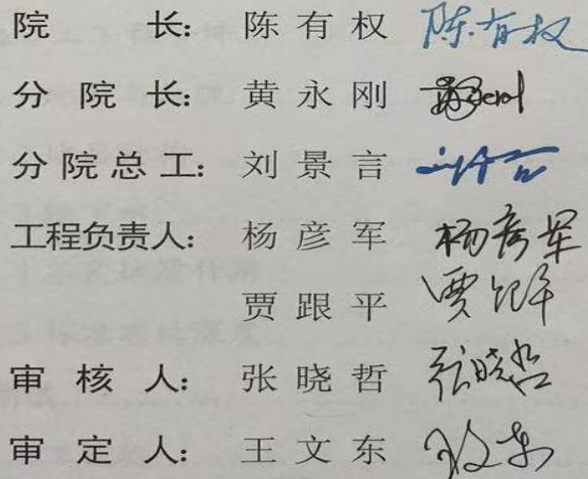 院长：陈有权 陈有权
分院长：黄永刚
分院总工：刘景言
工程负责人：杨彦军 杨彦军
贾跟平
审核人：张晓哲 张晓哲
审定人：王文东